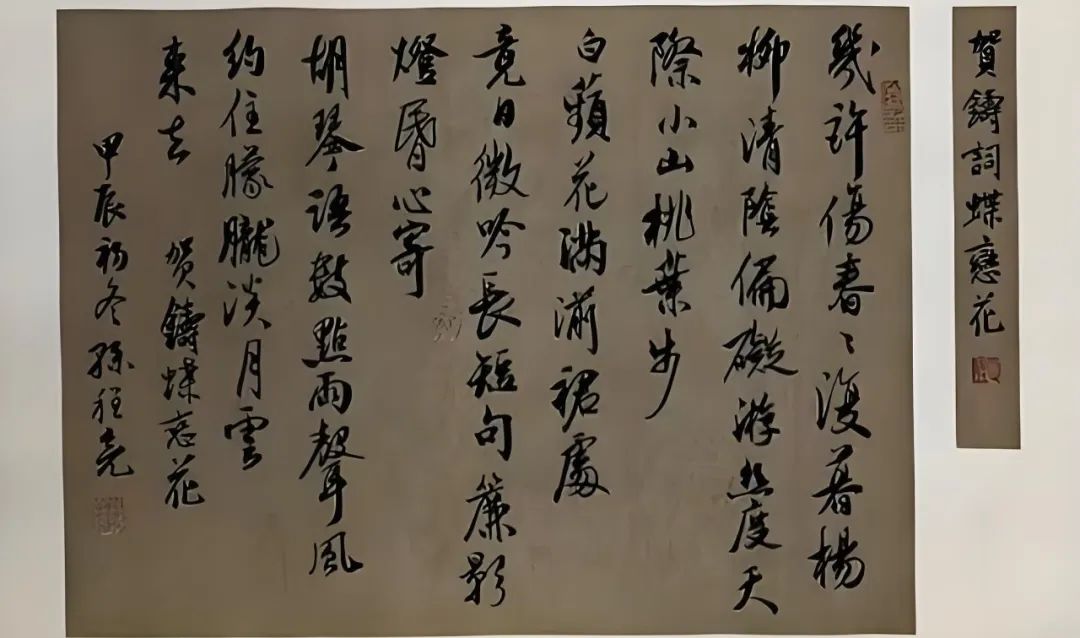 賀鑄詞蝶戀花
幾許傷春〻復暮楊
柳清陰偏礙游丝度天
際小山桃葉步
白蘋花滿湔裙處
竟日微吟長短句簾影
燈昏心寄
胡琴語數點雨聲風
約住朦朧淡月雲
来去 賀鑄蝶恋花
甲辰初冬孫程尧